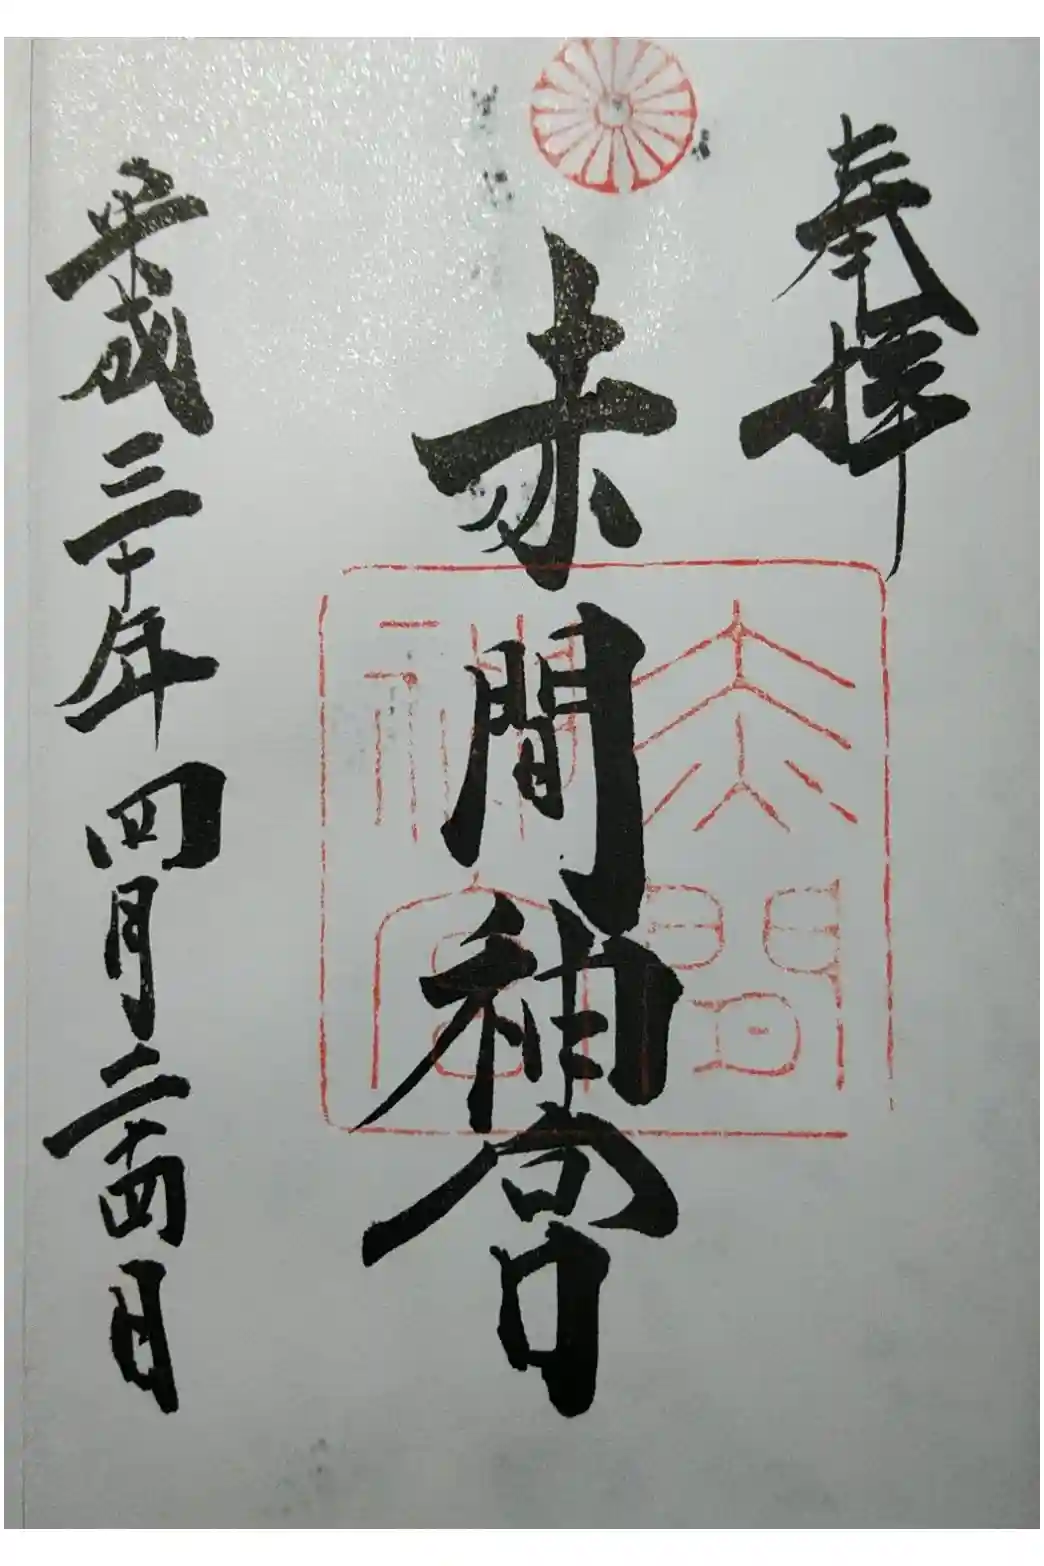 奉拝
赤間神宮
赤間
神宮
平成三十年四月二十四日